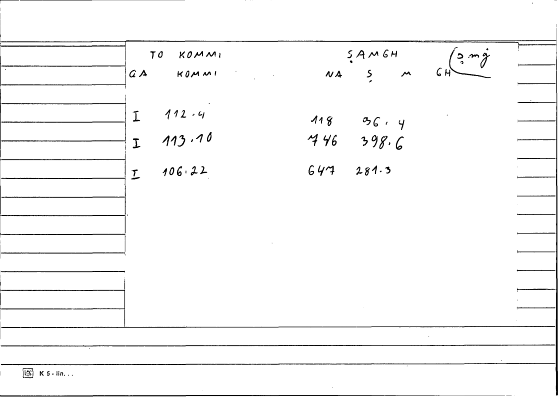 TO KOMMI ṢAMGH (ṣmġ
GA KOMMI NA Ṣ M GH
I 112.4 118 36.4
I 113.10 746 398.6
I 106.22 647 281.3
K 5 - lin...